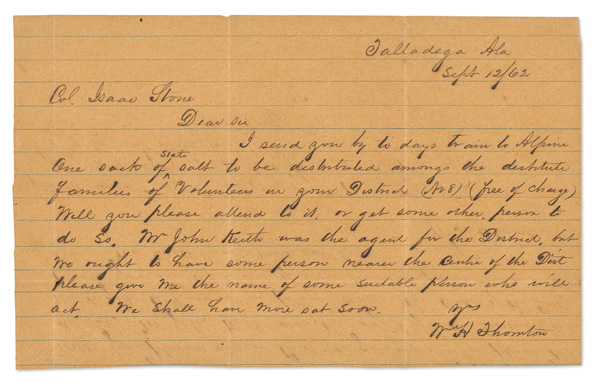 Talladega Ala
Sept 12/62
Col. Isaac Stone
Dear sir
I send you by to days train to Alpine
One sack of State salt to be destributed amongs the destitute
families of Volunteers in your District (No 8) (free of charge)
Will you please attend to it, or get some other person to
do so. Mr John Keith was the agent for the District, but
We ought to have some person nearer the centre of the Dist
please give me the name of some suitable person who will
act. We shall have more sat soon.
Yrs
Wm H Thornton